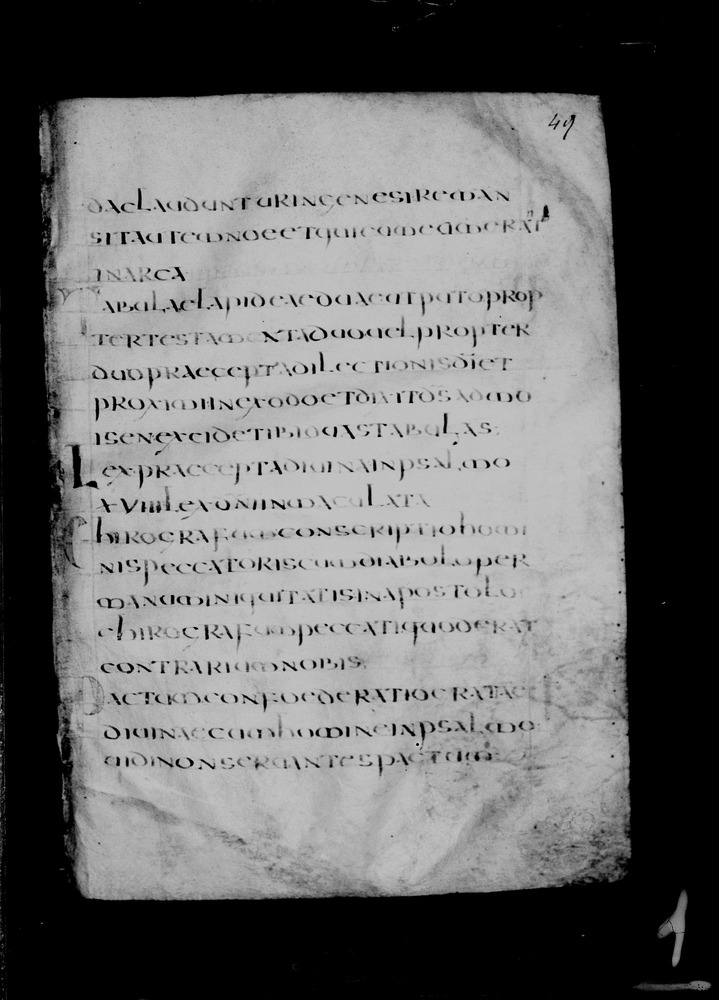 49
DACLAUDUNTURINGENESIREMAN
SITAUTEMNOEETQUICUMEUMERAT
INARCA
TABULAELAPIDEAEDUAEUTPUTOPROP
TERTESTAMENTADUOUELPROPTER
DUOPRAECEPTADILECTIONISDIET
PROXIMIINEXODOETDIXITDSADMO
ISENEXCIDETIBIDUASTABULAS;
LEXPRAECEPTADIUINAINPSALMO
XVIIILEXDNIINMACULATA
CHIROGRAFUMCONSCRIPTIOHOMI
NISPECCATORISCUMDIABOLOPER
MANUMINIQUITATISINAPOSTOLO
CHIROGRAFUMPECCATIQUODERAT
CONTRARIUMNOBIS;
PACTUMCONFOEDERATIOGRATIAE
DIUINAECUMHOMINEINPSALMO
UIDINONSERUANTESPACTUM;
1